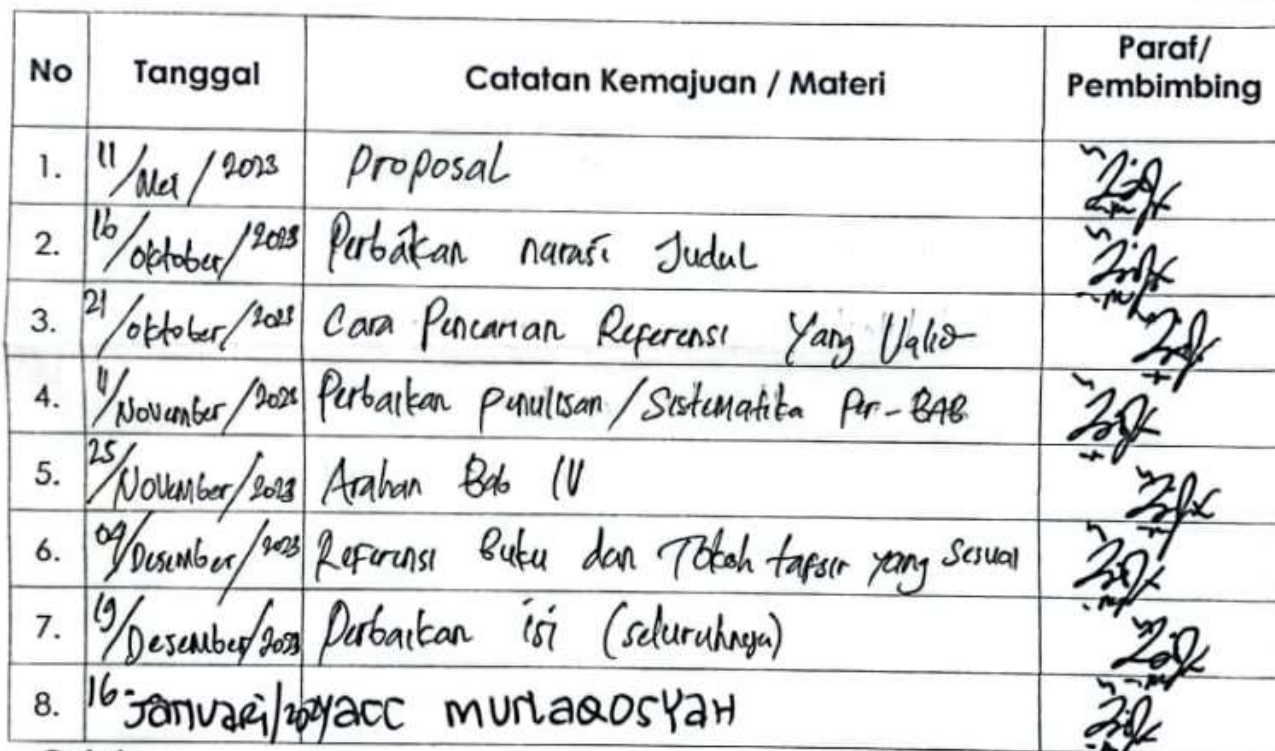 No Tanggal Catatan Kemajuan / Materi Paraf/ Pembimbing
1. 11/Mei/2023 Proposal
2. 16/oktober/2023 Perbaikan narasi Judul
3. 21/oktober/2023 Cara Pencarian Referensi Yang Valid
4. 11/November/2023 Perbaikan penulisan/Sistematika Per-BAB
5. 25/November/2023 Arahan Bab IV
6. 09/Desember/2023 Referensi Buku dan Tokoh tafsir yang Sesuai
7. 19/Desember/2023 Perbaikan isi (seluruhnya)
8. 16-Januari/2024 acc munaqosyah